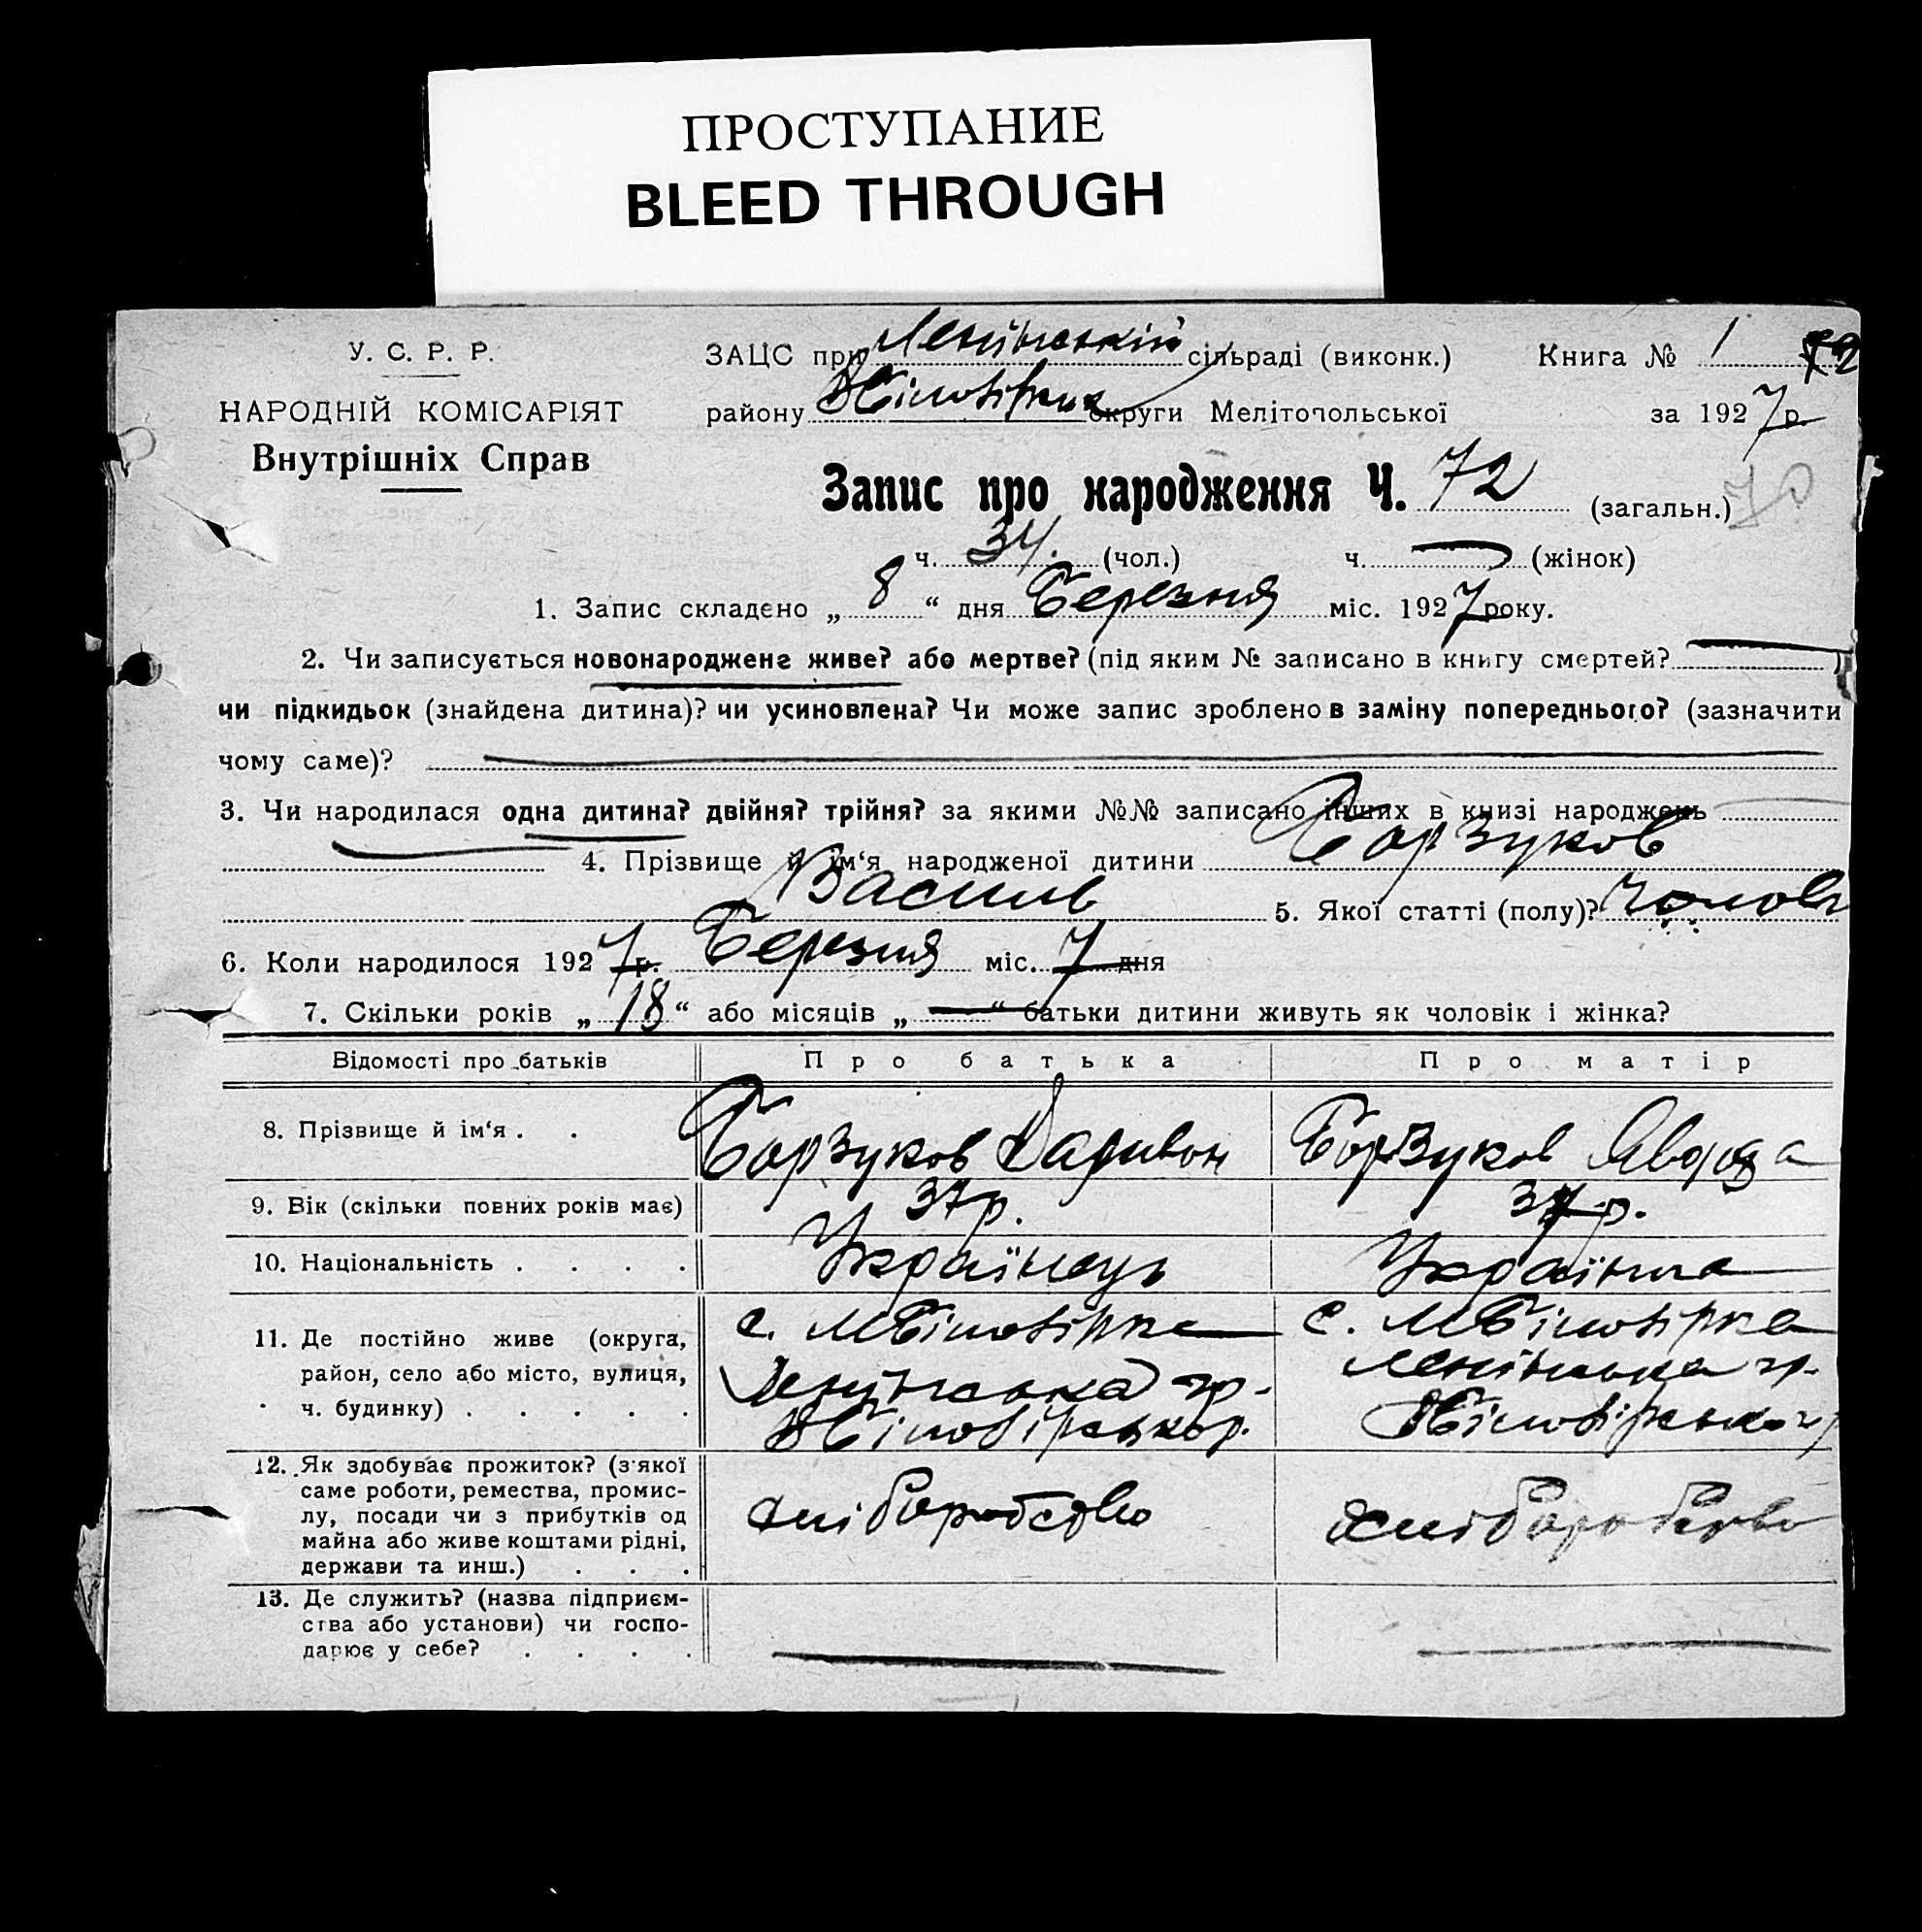 ПРОСТУПАНИЕ
BLEED THROUGH
У. С. Р. Р.
НАРОДНІЙ КОМІСАРІЯТ
Внутрішніх Справ
ЗАЦС при Ленінській сільраді (виконк.) Книга № 1 72
району округи Мелітопольської за 1927 р.
Запис про народження Ч. 72 (загальн.) 70
ч. 34. (чол.) ч. (жінок)
1. Запис складено „ 8 “ дня Березня міс. 1927 року.
2. Чи записується новонароджене живе? або мертве? (під яким № записано в книгу смертей? )
чи підкидьок (знайдена дитина)? чи усиновлена? Чи може запис зроблено в заміну попереднього? (зазначити
чому саме)?
3. Чи народилася одна дитина? двійня? трійня? за якими №№ записано інших в книзі народжень
4. Прізвище й ім‘я народженої дитини Борзуков
Василь 5. Якої статті (полу)? чолов
6. Коли народилося 1927 р. Березня міс. 7 дня
7. Скільки років „ 18 “ або місяців „ “ батьки дитини живуть як чоловік і жінка?
Відомості про батьків Про батька Про матір
8. Прізвище й ім‘я . . Борзуков Борзуков
9. Вік (скільки повних років має) 37 р. 37 р.
10. Національність . . . . Українець Українка
11. Де постійно живе (округа, с. МБіловірка с. МБіловірка
район, село або місто, вулиця, Ленінська Ленінська
ч. будинку) . . . . .
12. Як здобуває прожиток? (з якої
саме роботи, ремества, промис-
лу, посади чи з прибутків од хліборобство хліборобство
майна або живе коштами рідні,
держави та инш.) . . .
13. Де служить? (назва підприєм-
ства або установи) чи госпо-
дарює у себе? . . . .